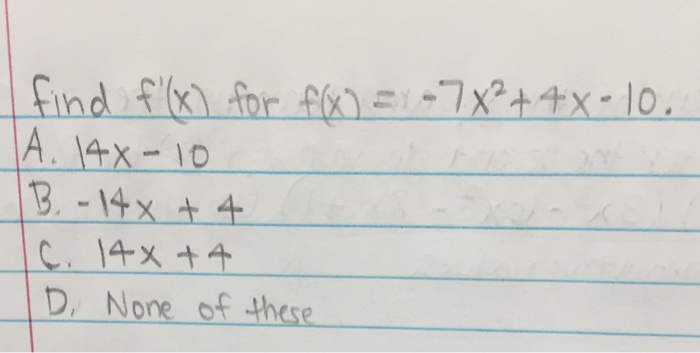 find f'(x) for f(x) = -7x²+4x-10.
A. 14x - 10
B. -14x + 4
C. 14x +4
D. None of these